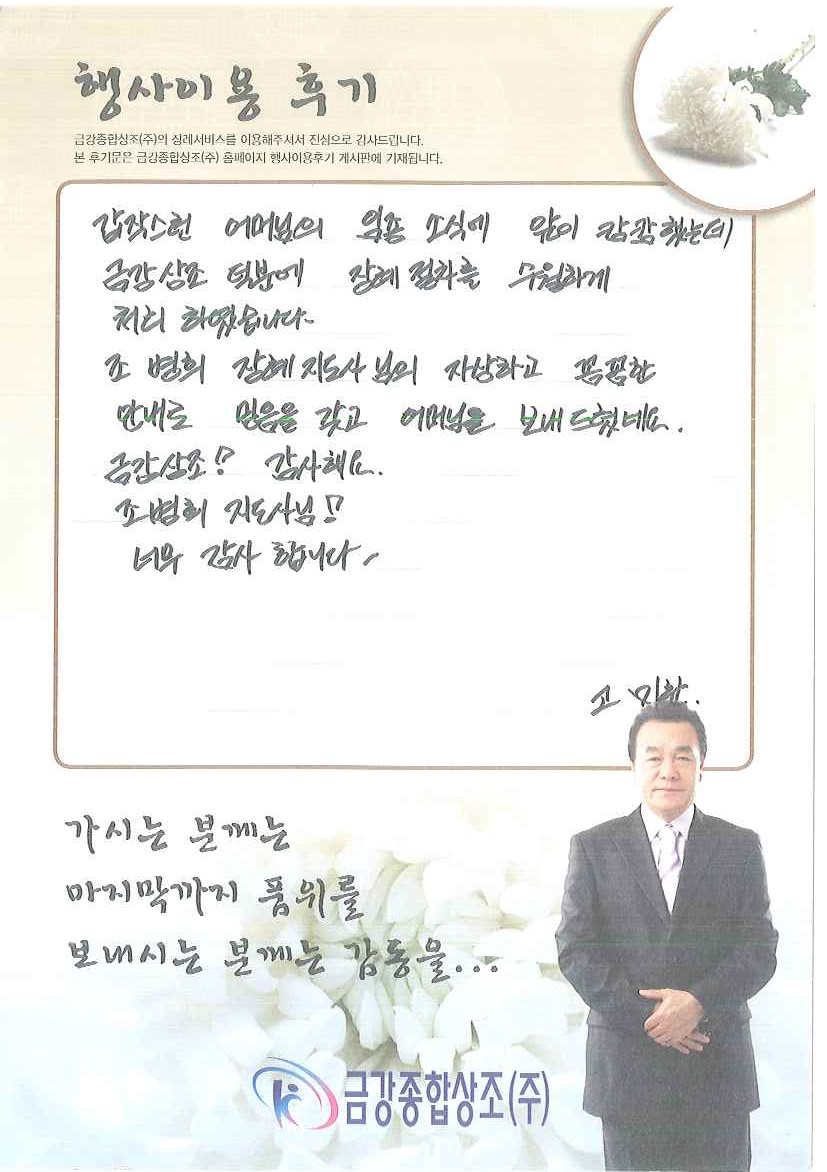 행사이용 후기
금강종합상조(주)의 장례서비스를 이용해주셔서 진심으로 감사드립니다.
본 후기문은 금강종합상조(주) 홈페이지 행사이용후기 게시판에 기재됩니다.
갑작스런 어머님의 임종 소식에 앞이 캄캄했는데
금강상조 덕분에 장례절차를 수월하게
처리 하였습니다.
조 병희 장례지도사님의 자상하고 꼼꼼한
안내로 믿음을 갖고 어머님을 보내드렸네요.
금강상조!! 감사해요.
조병희 지도사님!!
너무 감사 합니다.
고
가시는 분께는
마지막까지 품위를
보내시는 분께는 감동을...
금강종합상조(주)